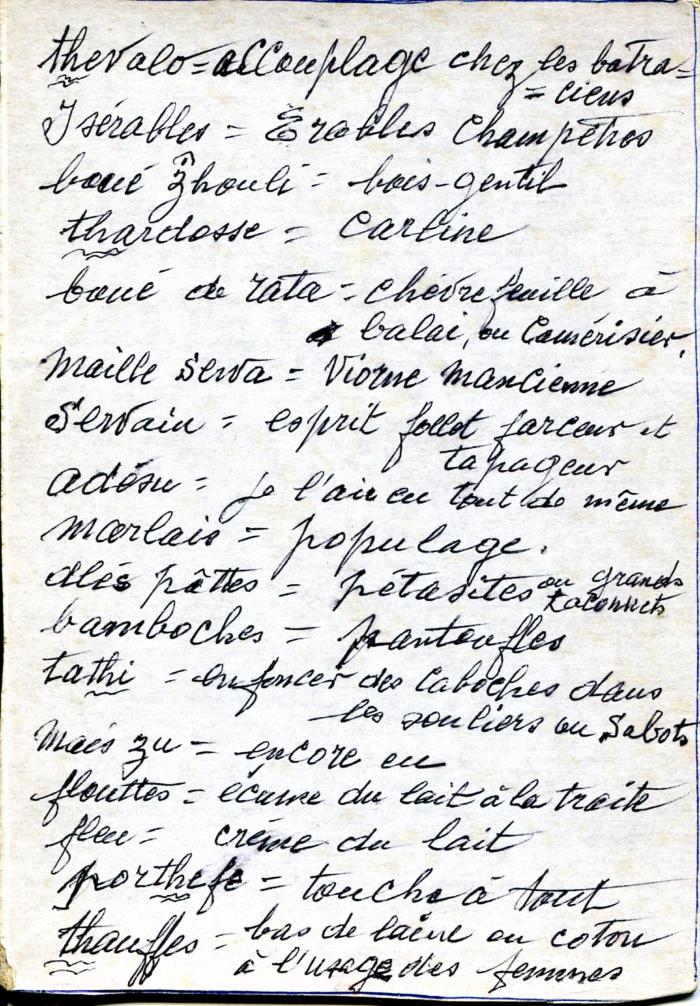 thevalo = accouplage chez les batra=
= ciens
Isérables = Érables champêtres
boué Zhouli = bois-gentil
thardosse = Carline
boué de rata = chèvrefeuille à
balai, ou Camérisier,
Maille Serva = Viorne Mancienne
Servain = esprit follet farceur et
tapageur
adésu = je l'ai eu tout de même
marlais = populage.
dlés pâttes = pétasites ou grands
taconnets
bamboches = pantoufles
tathi = enfoncer des Caboches dans
les souliers ou Sabots
mais zu = encore eu
flouttes = écume du lait à la traite
fleu = crème du lait
porthefe = touche à tout
thauffes = bas de laine ou coton
à l'usage des femmes